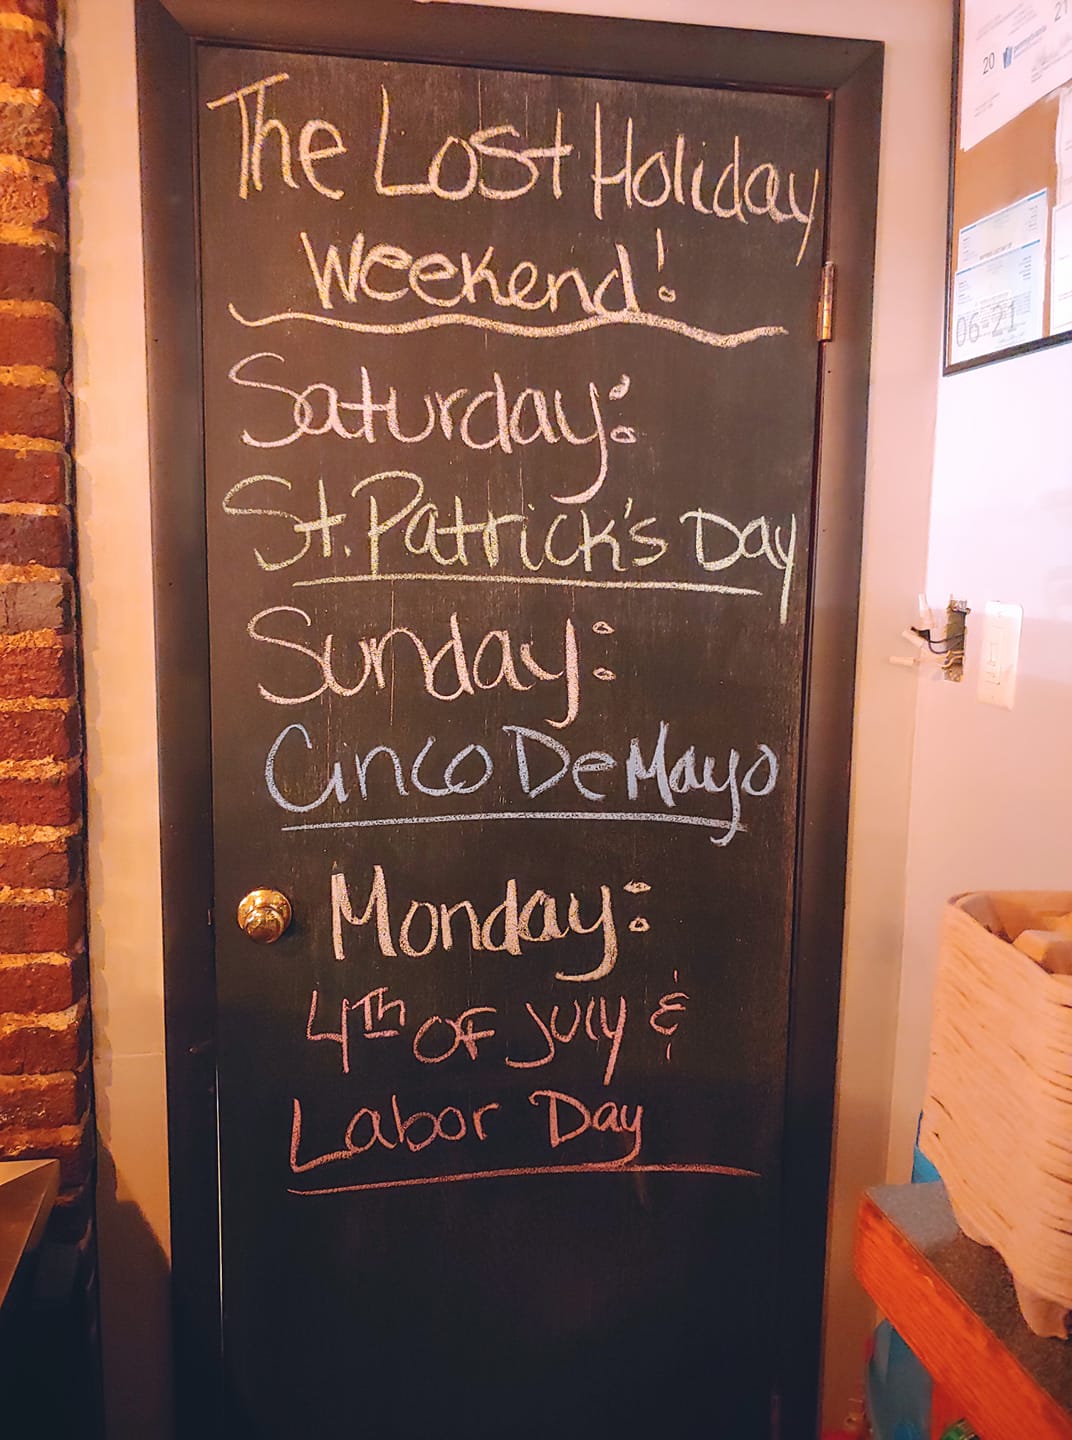 The Lost Holiday
Weekend!
Saturday:
St. Patrick's Day
Sunday:
Cinco De Mayo
Monday:
4th of July &
Labor Day
20
21
pennsylvania
06-21